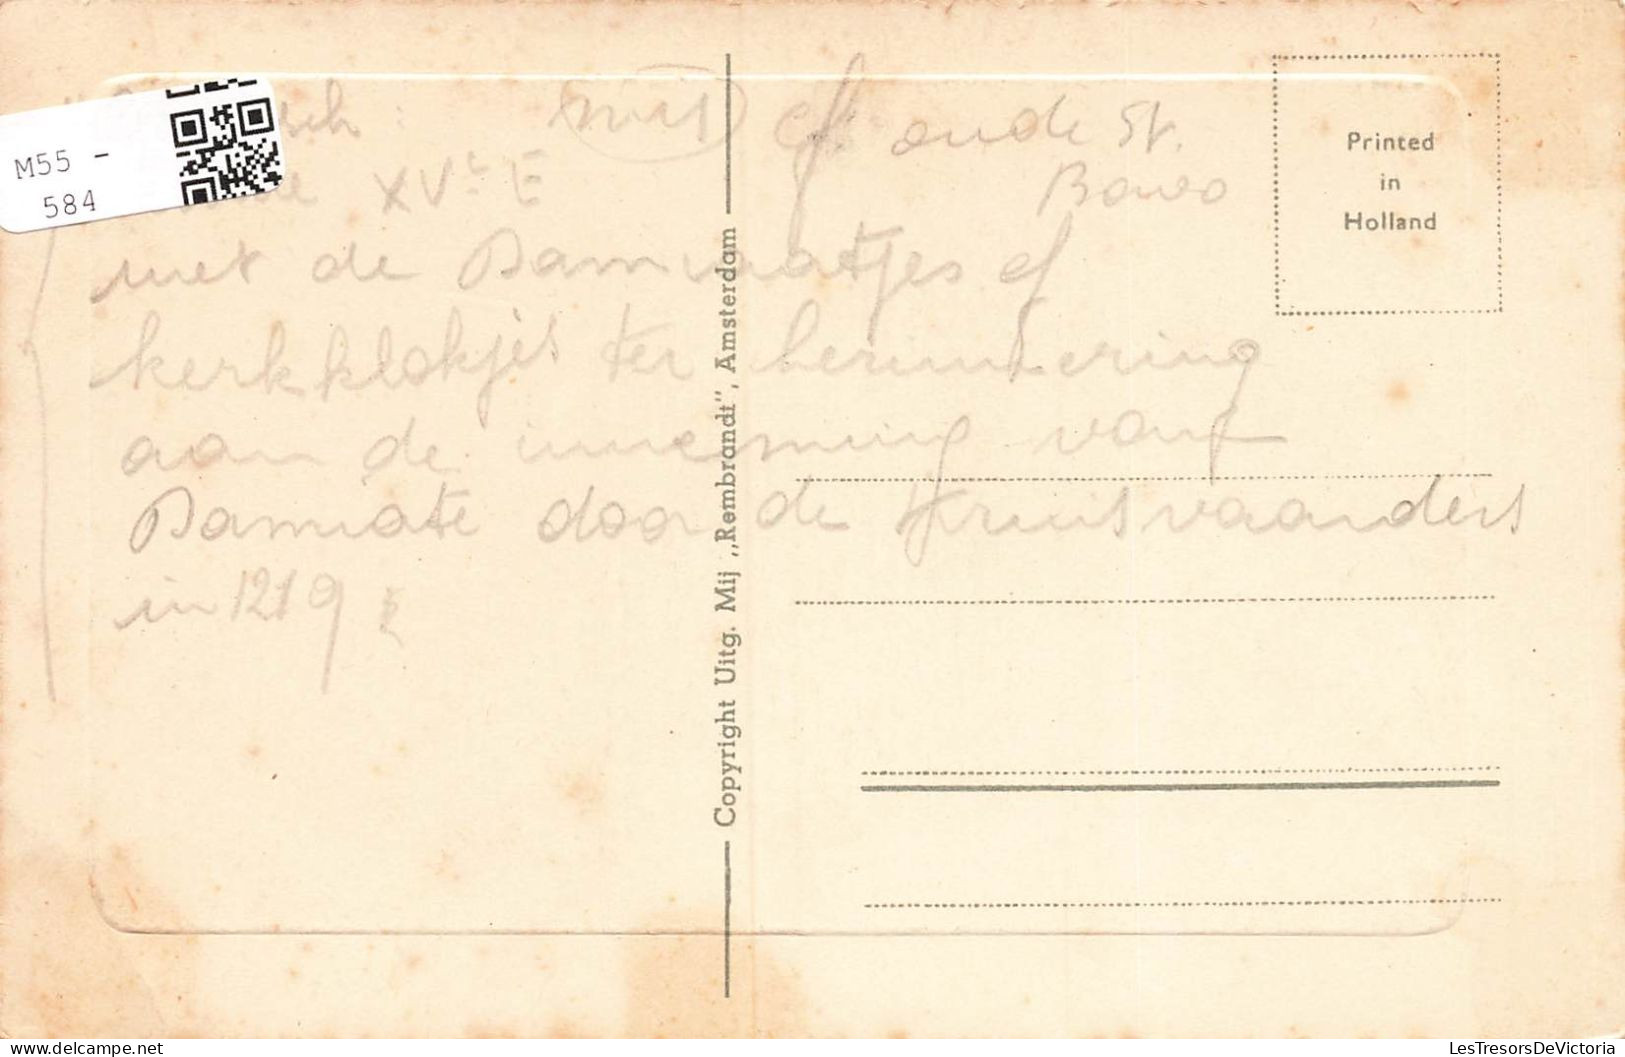 M55 -
584
of oude St.
Bavo
XVe E
met de Damiaatjes of
kerkklokjes ter herinnering
aan de inneming van
Damiate door de Kruisvaarders
in 1219
Copyright Uitg. Mij „Rembrandt", Amsterdam
Printed
in
Holland
LesTresorsDeVictoria